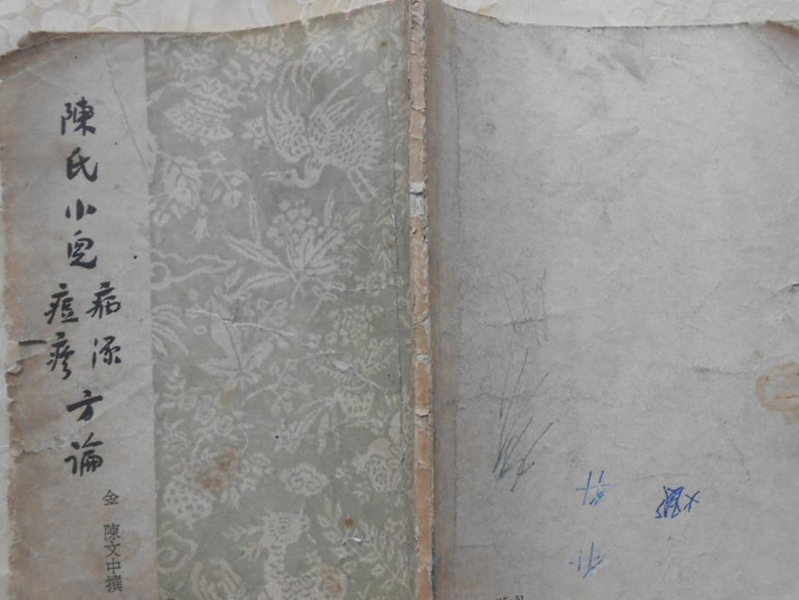 陳氏小兒病源
痘疹方論
金 陳文中撰